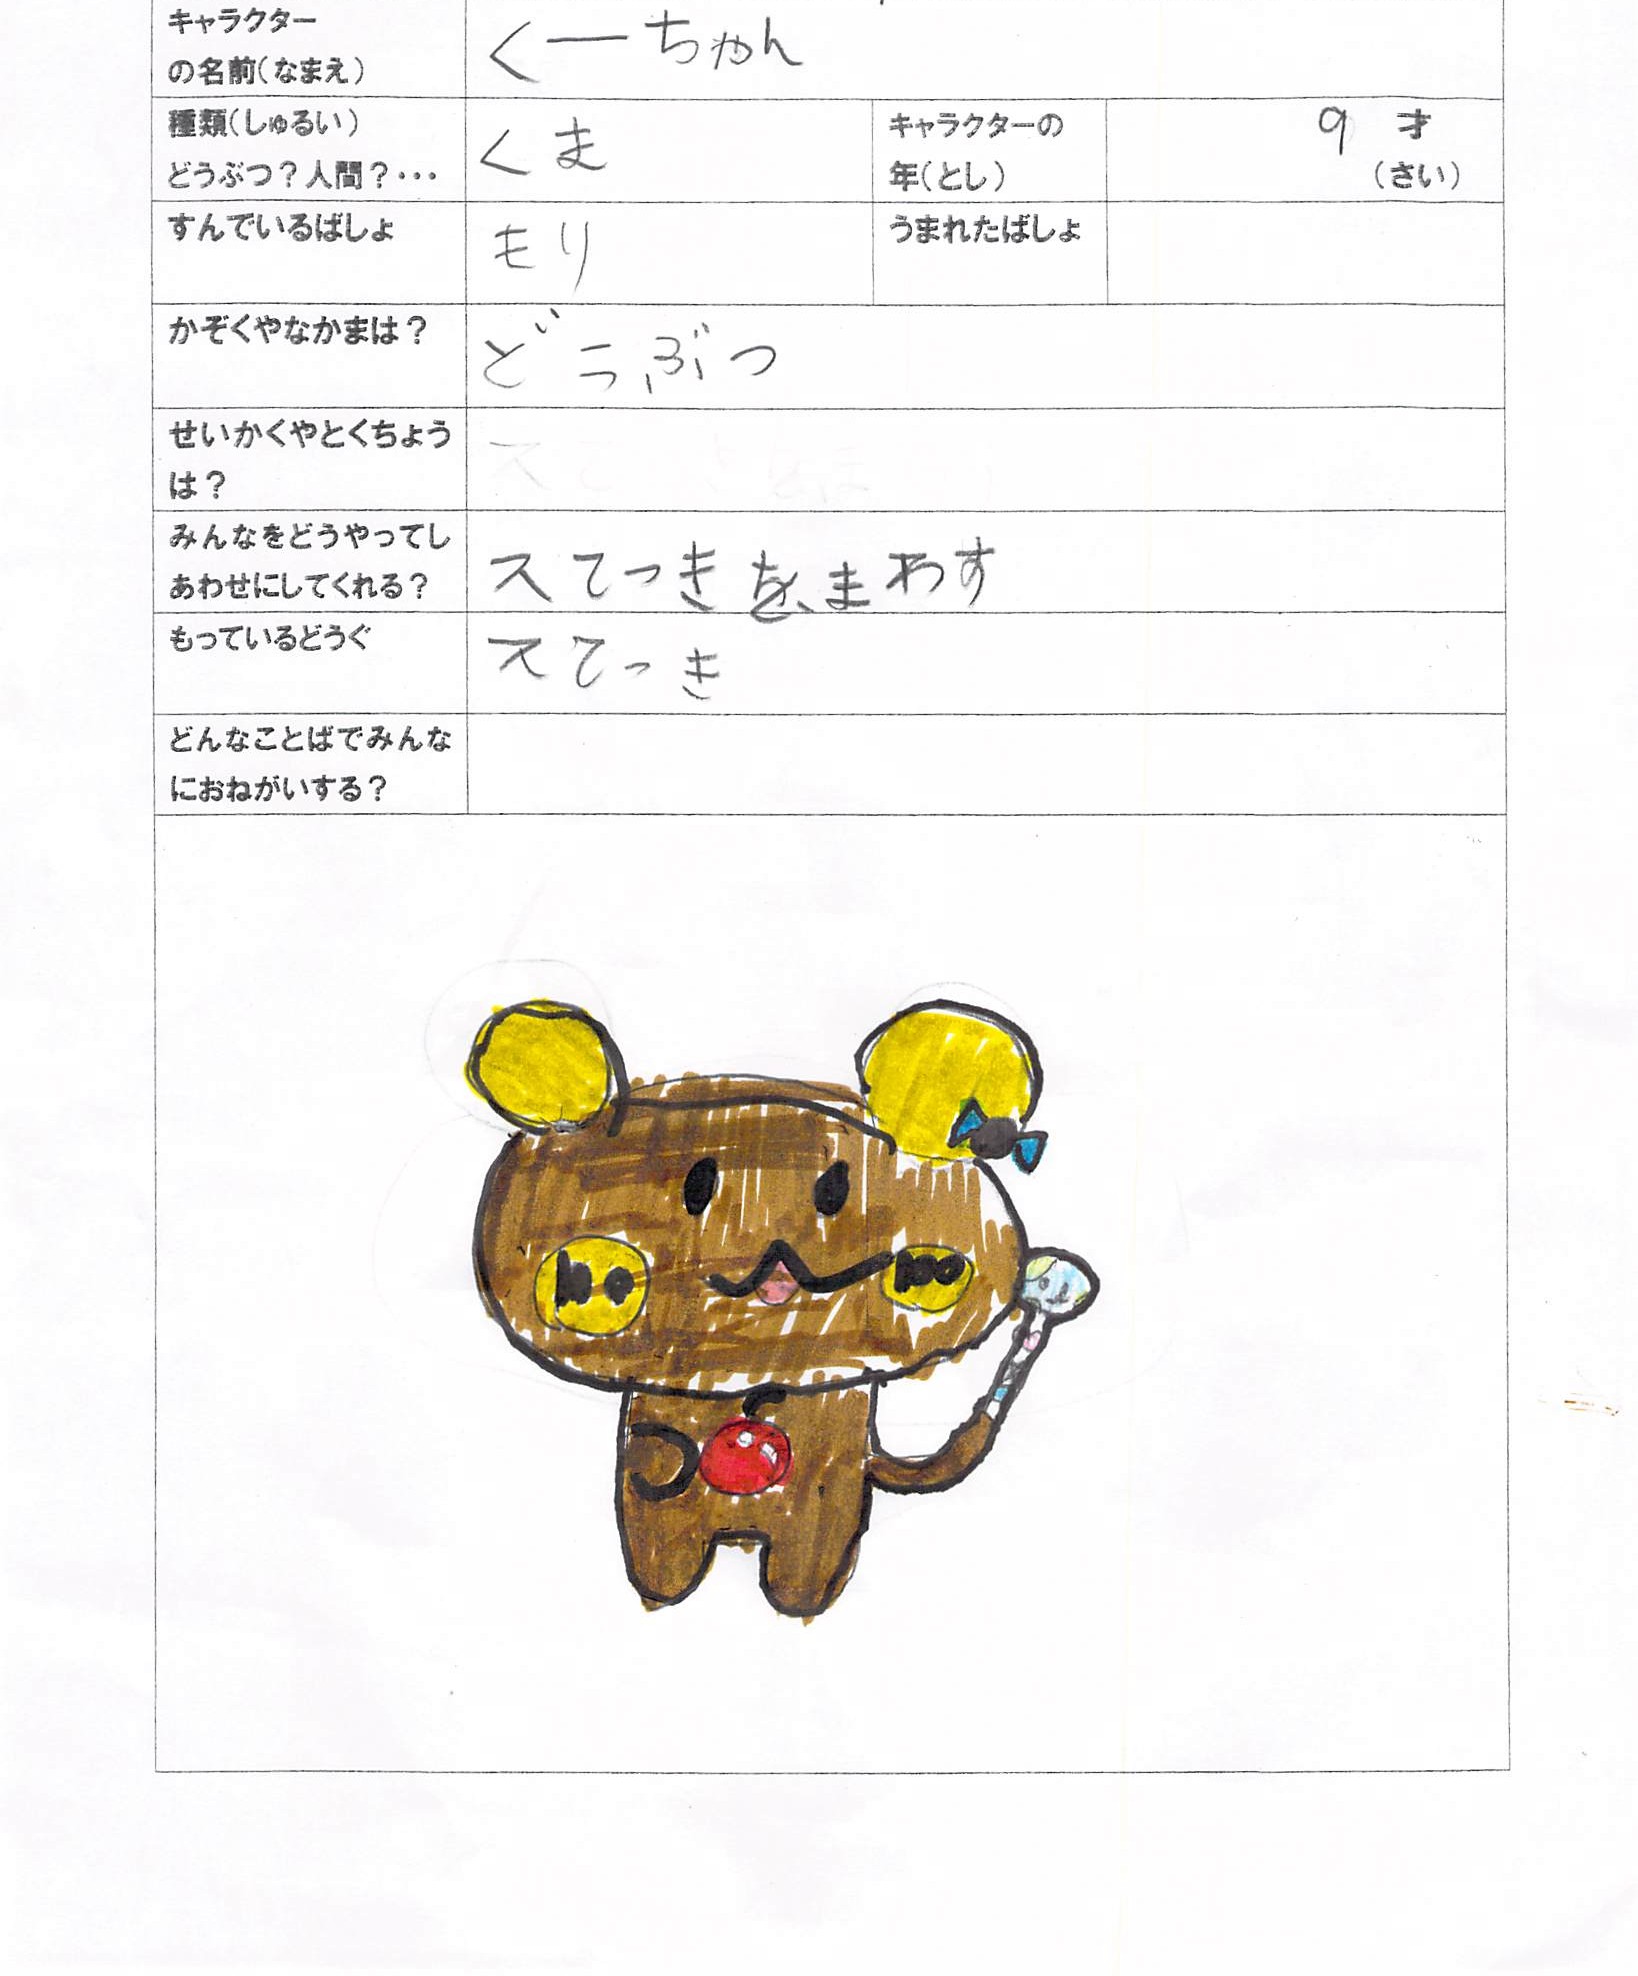 キャラクター
の名前(なまえ)
くーちゃん
種類(しゅるい)
どうぶつ?人間?・・・
くま
キャラクターの
年(とし)
9 才
(さい)
すんでいるばしょ
もり
うまれたばしょ
かぞくやなかまは?
どうぶつ
せいかくやとくちょう
は?
みんなをどうやってし
あわせにしてくれる?
スてっきをまわす
もっているどうぐ
スてっき
どんなことばでみんな
におねがいする?